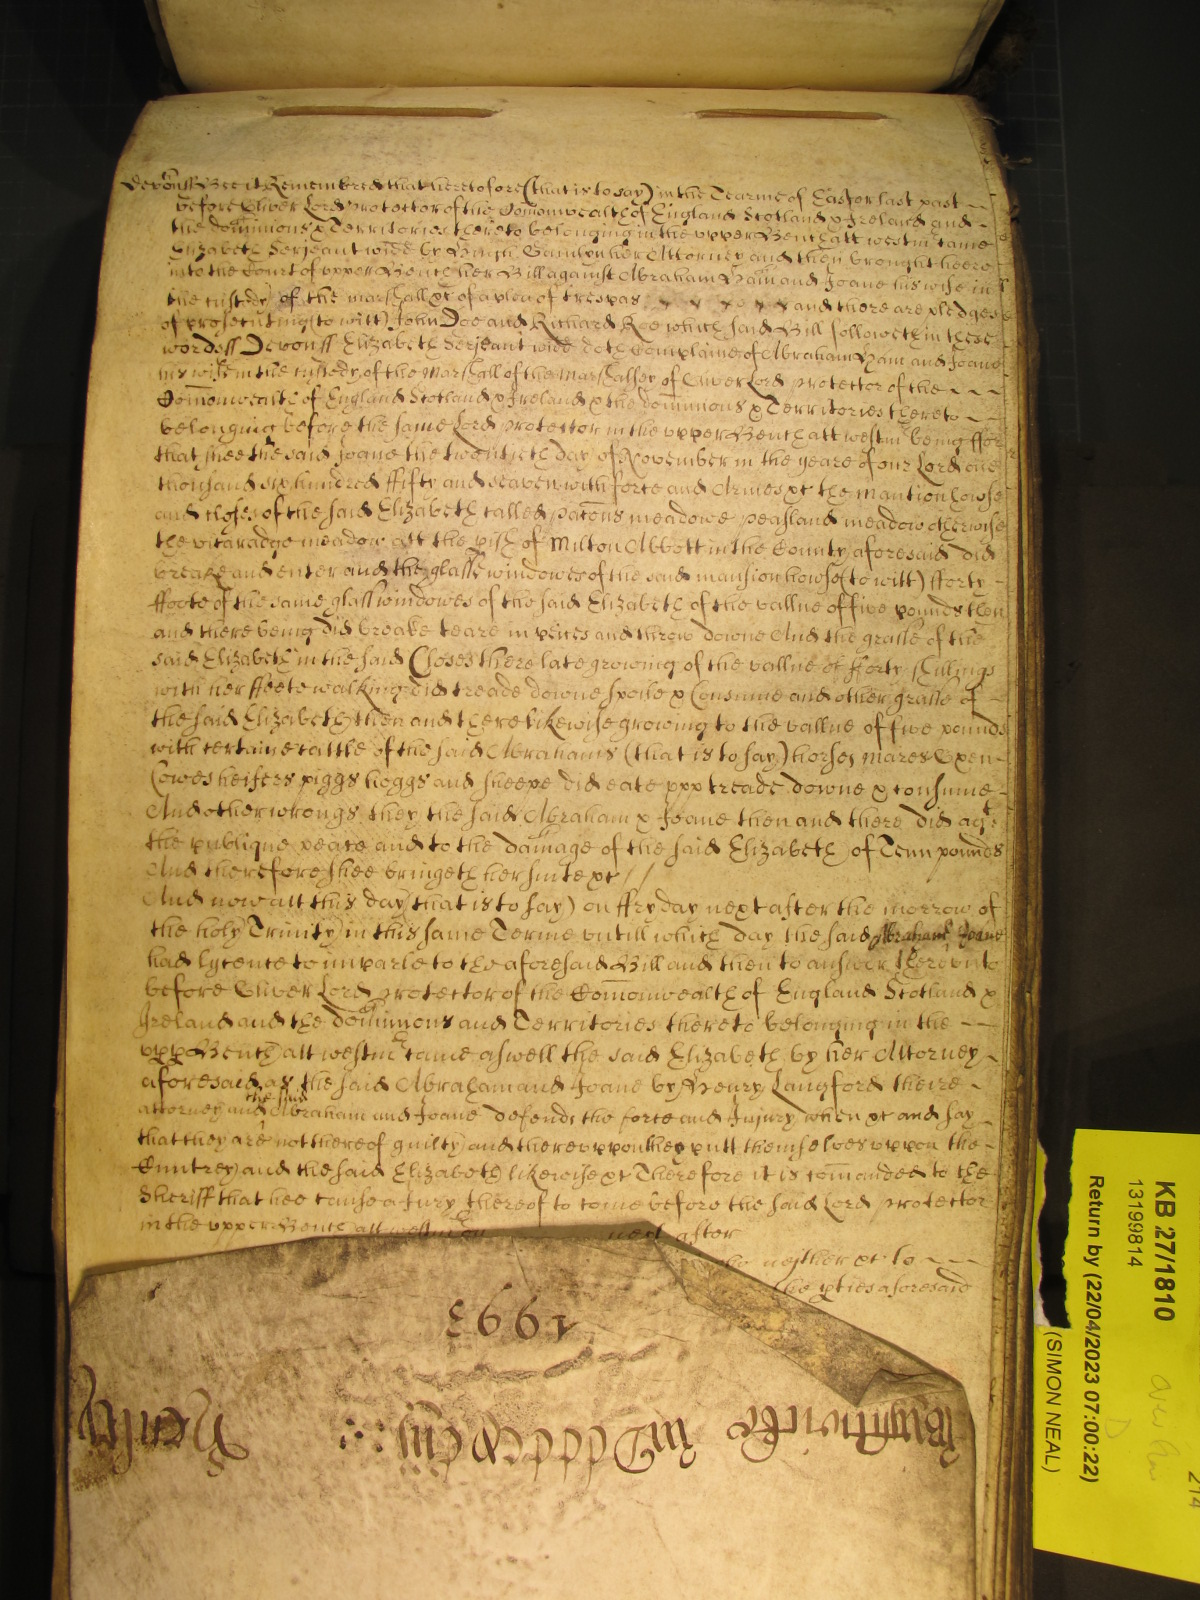 Devonss Bee it Remembred that heretofore (that is to say) in the Tearme of Easter last past
before Oliver Lord Protector of the Comonwealth of England Scotland & Ireland and
the dominions & Territories thereto belonging in the upper Bench att westm came
Elizabeth Serjeant widd by her Attorney and then brought heere
into the Court of upper Bench her Bill against Abraham Ham and Joane his wife in
the custody of the marshall &c of a plea of trespas and there are pledges
of prosecuting (to witt) John Doe and Richard Roe which said Bill followeth in these
words ss Devonss Elizabeth Serjeant widd doth Complaine of Abraham Ham and Joane
his wife in the custody of the Marshall of the Marshalsey of Oliver Lord Protector of the
Comonwealth of England Scotland & Ireland & the dominions & Territories thereto
belonging before the same Lord Protector in the upper Bench att westm being ffor
that shee the said Joane the twentieth day of November in the yeare of our Lord one
thousand six hundred ffifty and seaven with force and Armes &c the mantion howse
and closes of the said Elizabeth called patons meadowe peasland meadow otherwise
the vicaradge meadow att the pish of Milton Abbott in the County aforesaid did
breake and enter and the glasse windowes of the said mansion howse (to witt) fforty
ffoote of the same glass windowes of the said Elizabeth of the vallue of five pounds then
and there being did breake teare in peices and throw downe And the grasse of the
said Elizabeth in the said Closes there late growing of the vallue of fforty shillings
with her ffeete walking did treade downe spoile & Consume and other grasse of
the said Elizabeth then and there likewise growing to the vallue of five pounds
with certaine cattle of the said Abrahams (that is to say) horses mares Oxen
Cowes heifers piggs hoggs and sheepe did eate upp treade downe & consume
And other wrongs they the said Abraham & Joane then and there did agt
the publique peace and to the damage of the said Elizabeth of Tenn pounds
And therefore shee bringeth her suite &c //
And now att this day (that is to say) on ffryday next after the morrow of
the holy Trinity in this same Terme untill which day the said Abraham & Joane
had lycence to imparle to the aforesaid Bill and then to answer thereunto
before Oliver Lord Protector of the Comonwealth of England Scotland &
Ireland and the dominions and Territories thereto belonging in the
upp Bench att westm came aswell the said Elizabeth by her Attorney
aforesaid as the said Abraham and Joane by Henry Langford theire
attorney and the said Abraham and Joane defends the force and Injury when &c and say
that they are not thereof guilty and thereuppon they putt themselves uppon the
Cuntrey and the said Elizabeth likewise &c Therefore it is comanded to the
Sheriff that hee cause a Jury thereof to come before the said Lord Protector
in the upper Bench att westm on next after
who neither &c to
the pties aforesaid
1993
KB 27/1810
13199814
Return by (22/04/2023 07:00:22)
(SIMON NEAL)
214